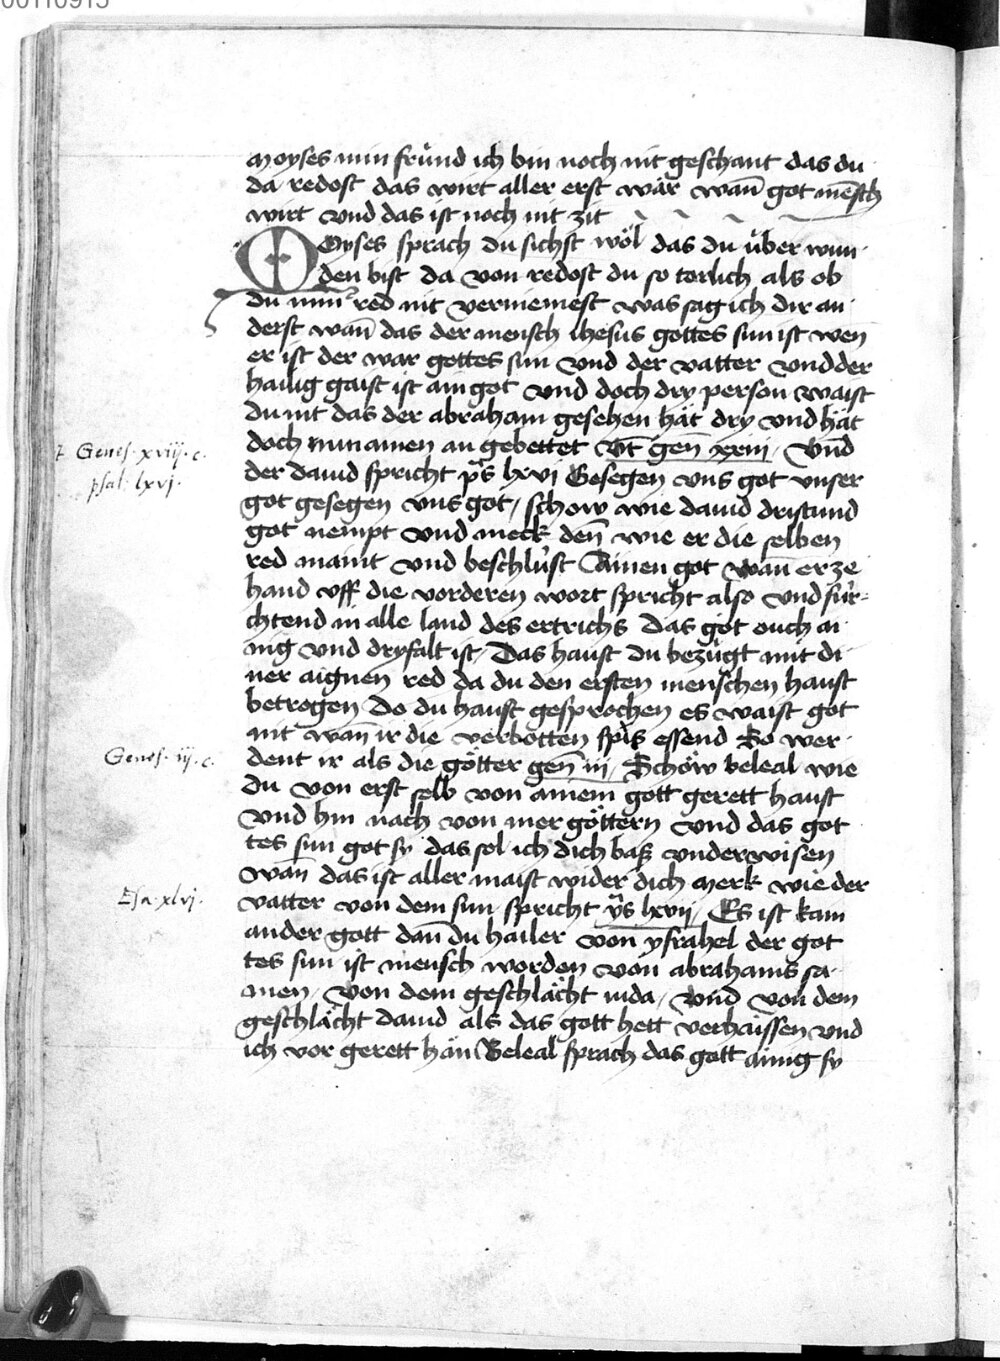 00110915
moyses min fru̇nd ich bin noch nit geschant das du
da redost das wirt aller erst wär wan̄ got mēsch
wirt vnd das ist noch nit zit
MOyses sprach du sichst wol das du über wun
den bist da von redost du so torlich als ob
du miner red nit verniemest was sag ich dir an
derst wan̄ das der mensch ihesus gottes sun ist wen
er ist der war gottes sun vnd der vatter vnd der
hailig gaist ist ain got vnd doch dry person waist
du nit das der abraham gesehen hät dry vnd hät
doch nun ainen an gebettet Vt gen̄ xviii Vnd
t Genes. xviij. c.
der dauid spricht ps lxvi Gesegen vns got vnser
psal. lxvj.
got gesegen vns got / schow wie dauid dristund
got nempt vnd merck den̄ wie er die selben
red maint vnd beschlu̇st Ainen got wan̄ er ze
hand vff die vorderen wort spricht also vnd fu̇r-
chtend in alle land des ertrichs Das got ouch ai
nig vnd dryfalt ist / Das haust du bezu̇gt mit di
ner aignen red da du den ersten menschen haust
betrogen Do du haust gesprochen es waist got
nit wan̄ ir die verbotten spis essend So wer
dent ir als die götter gen̄ iii / Schöw beleal wie
Genes. iij. c.
du von erst selb von ainem gott gerett haust
vnd hin nach von mer göttern vnd das got
tes sun got sy das sol ich dich baß vnderwisen
wan̄ das ist aller maist wider dich merk wie der
vatter von dem sun spricht ps lxvij / Es ist kain
Esa. xlvj.
ander gott dan̄ du hailer von ysrahel der got
tes sun ist mensch worden von abrahams sa-
men / Von dem geschlächt iuda / Vnd von dem
geschlächt dauid als das gott hett verhaissen vnd
ich vor gerett hän Beleal sprach das gott ainig sy